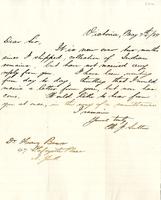 Victoria, May 7th/80
Dear Sir,
It is now over two months
since I shipped, collection of Indian
remains, but have not received any
reply from you. I have been waiting
from day to day, thinking that I would
receive a letter from you, but now
would like to hear from
you at once, in the way of a remittance
I remain
Yours truly
W. J. Sutton
Dr Henry